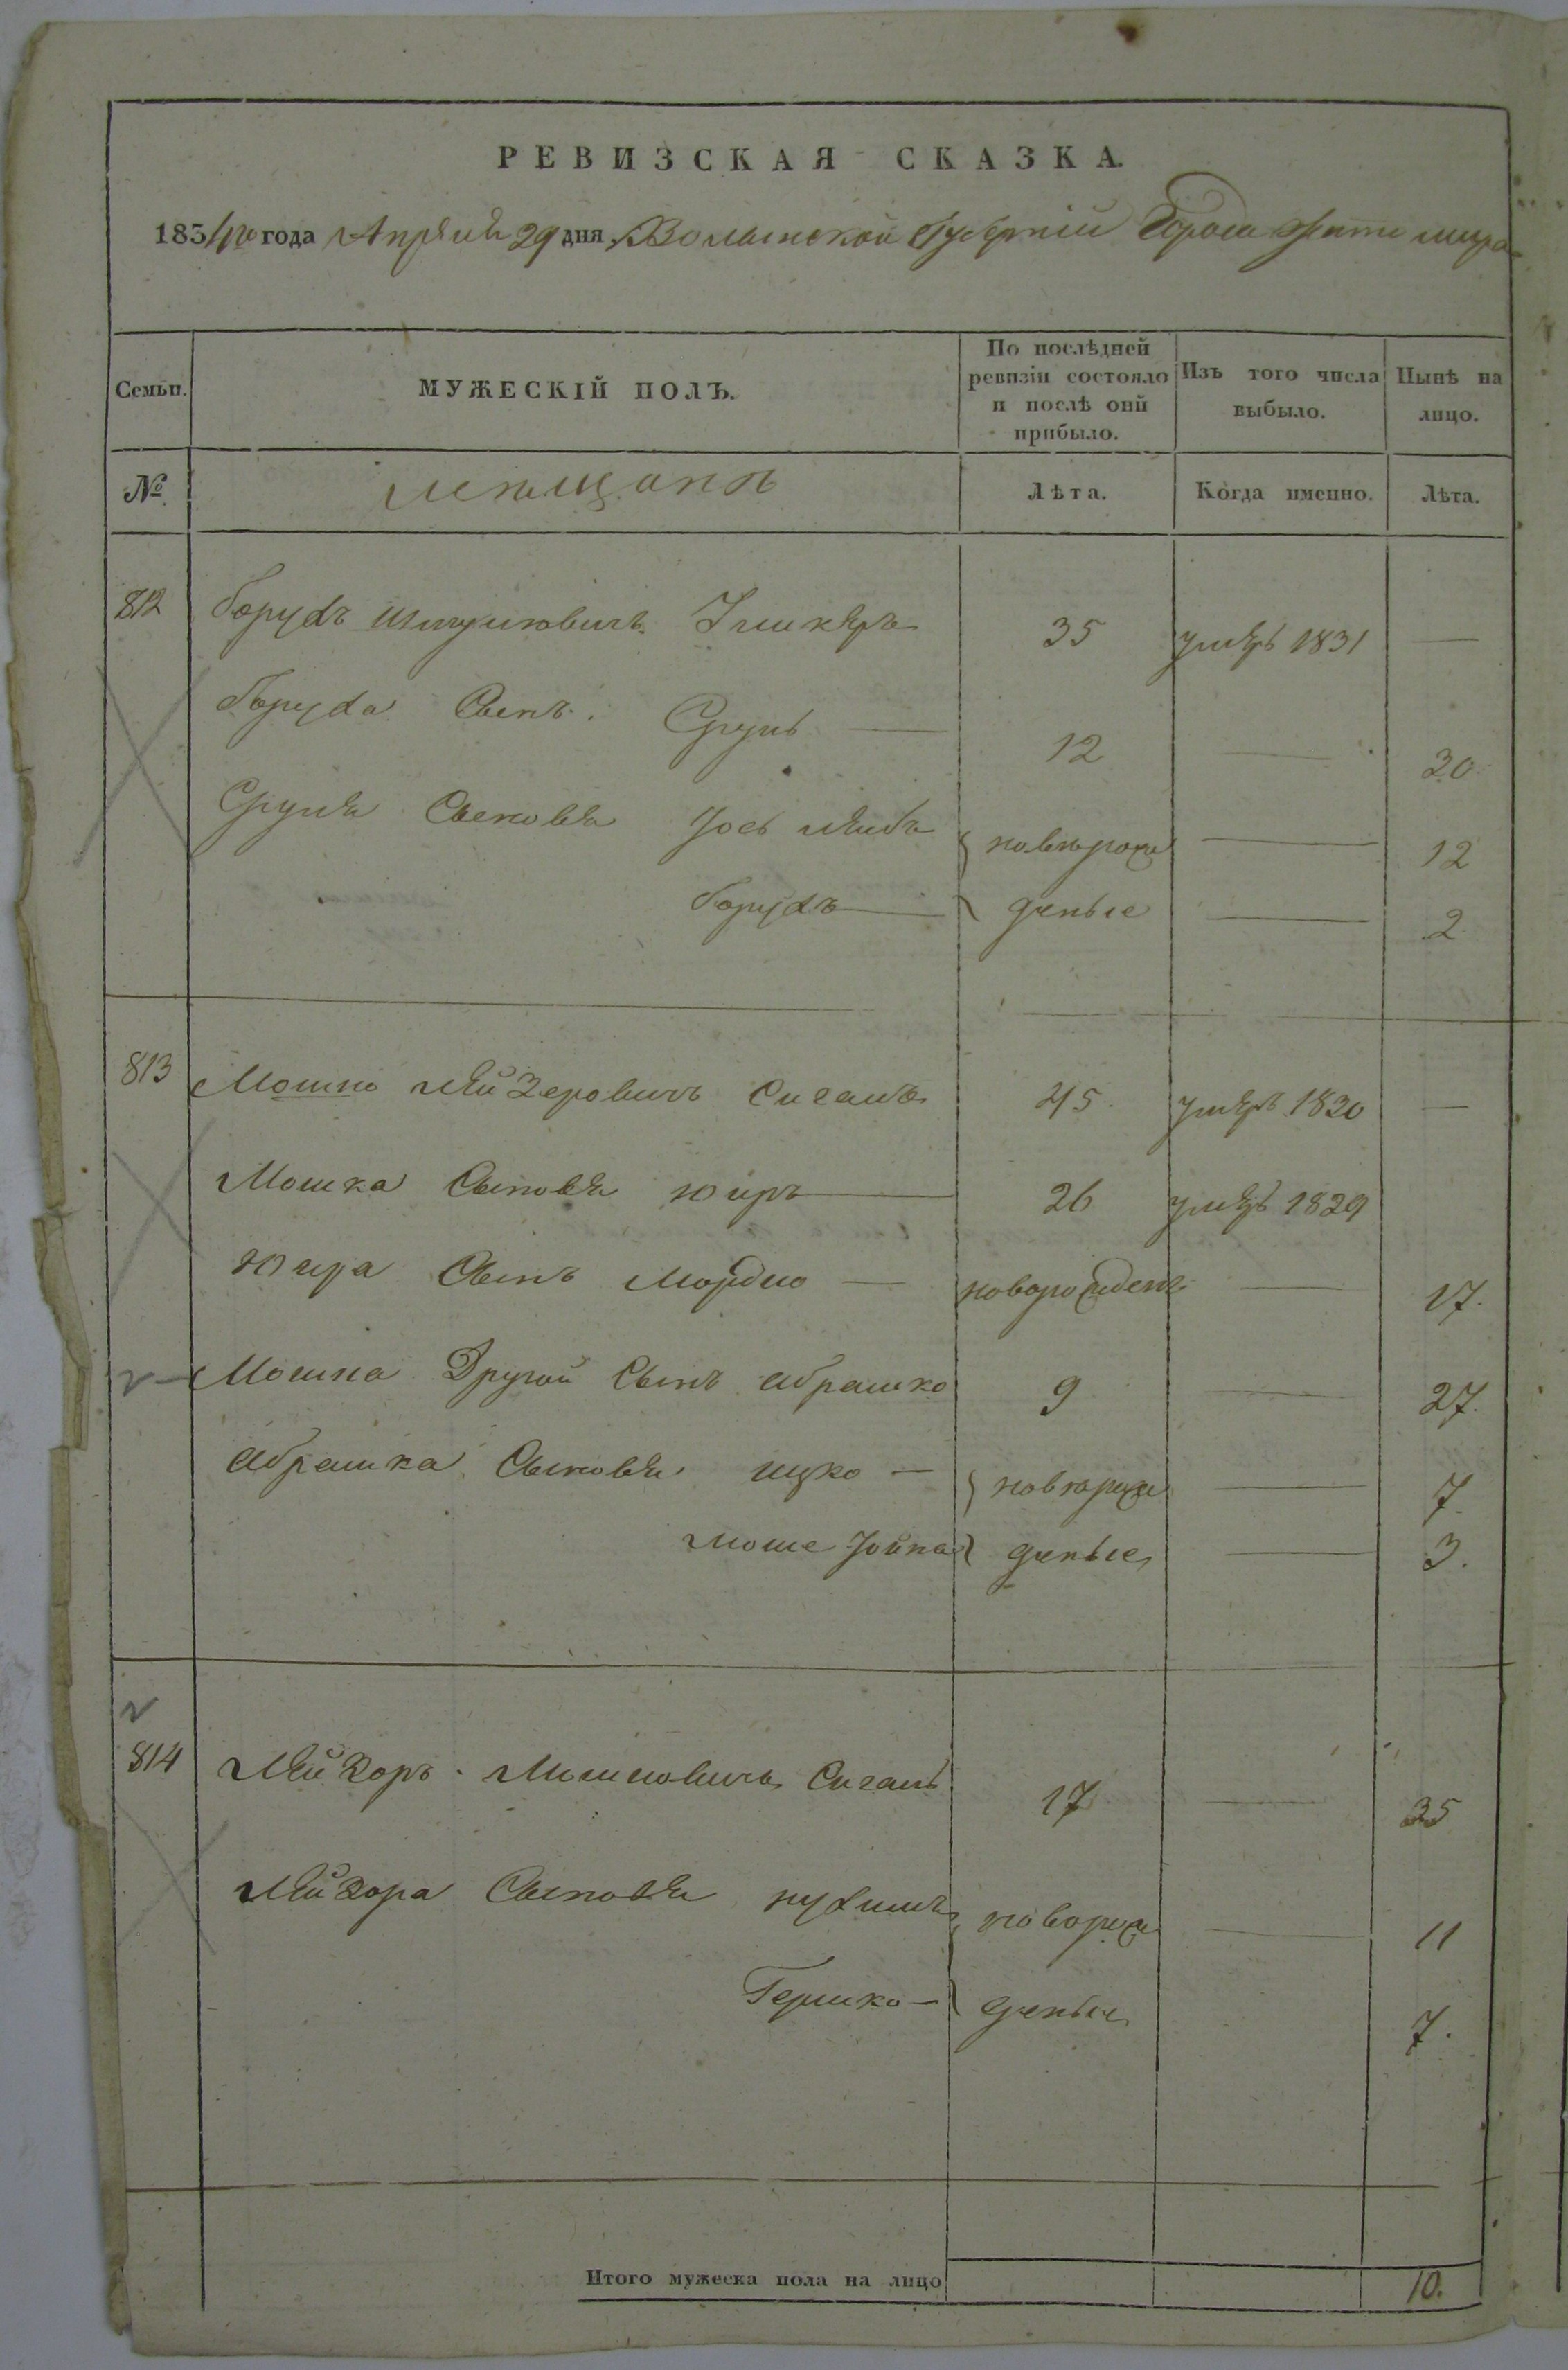 РЕВИЗСКАЯ СКАЗКА.
1834го года Апреля 29 дня Волынской Губернии Города Житомира
Семьи. МУЖЕСКІЙ ПОЛЪ. По послѣдней ревизіи состояло и послѣ оній прибыло. Изъ того числа выбыло. Нынѣ на лицо.
№ мещанъ Лѣта. Когда именно. Лѣта.
812 Борухъ 35 умеръ 1831 —
Боруха Сынъ Сруль — 12 — 30
Сруля Сыновья Іось Лейбъ } новорож — 12
Борухъ — } денные — 2
813 Мошко Лейзеровичъ Сигалъ 45 умеръ 1830 —
Мошка Сыновья Юиръ — 26 умеръ 1829
Юира Сынъ Мордко — новорожденъ — 17.
Мошка Другой Сынъ Абрамко 9 — 27.
Абрамка Сыновья Ицко — } новорож — 7.
Моше Іойна } денные — 3.
814 Лейзоръ Мошковичъ Сигалъ 17 — 35
Лейзора Сыновья Нухимъ } новорож — 11
Гершко — } денные 7.
Итого мужеска пола на лицо 10.